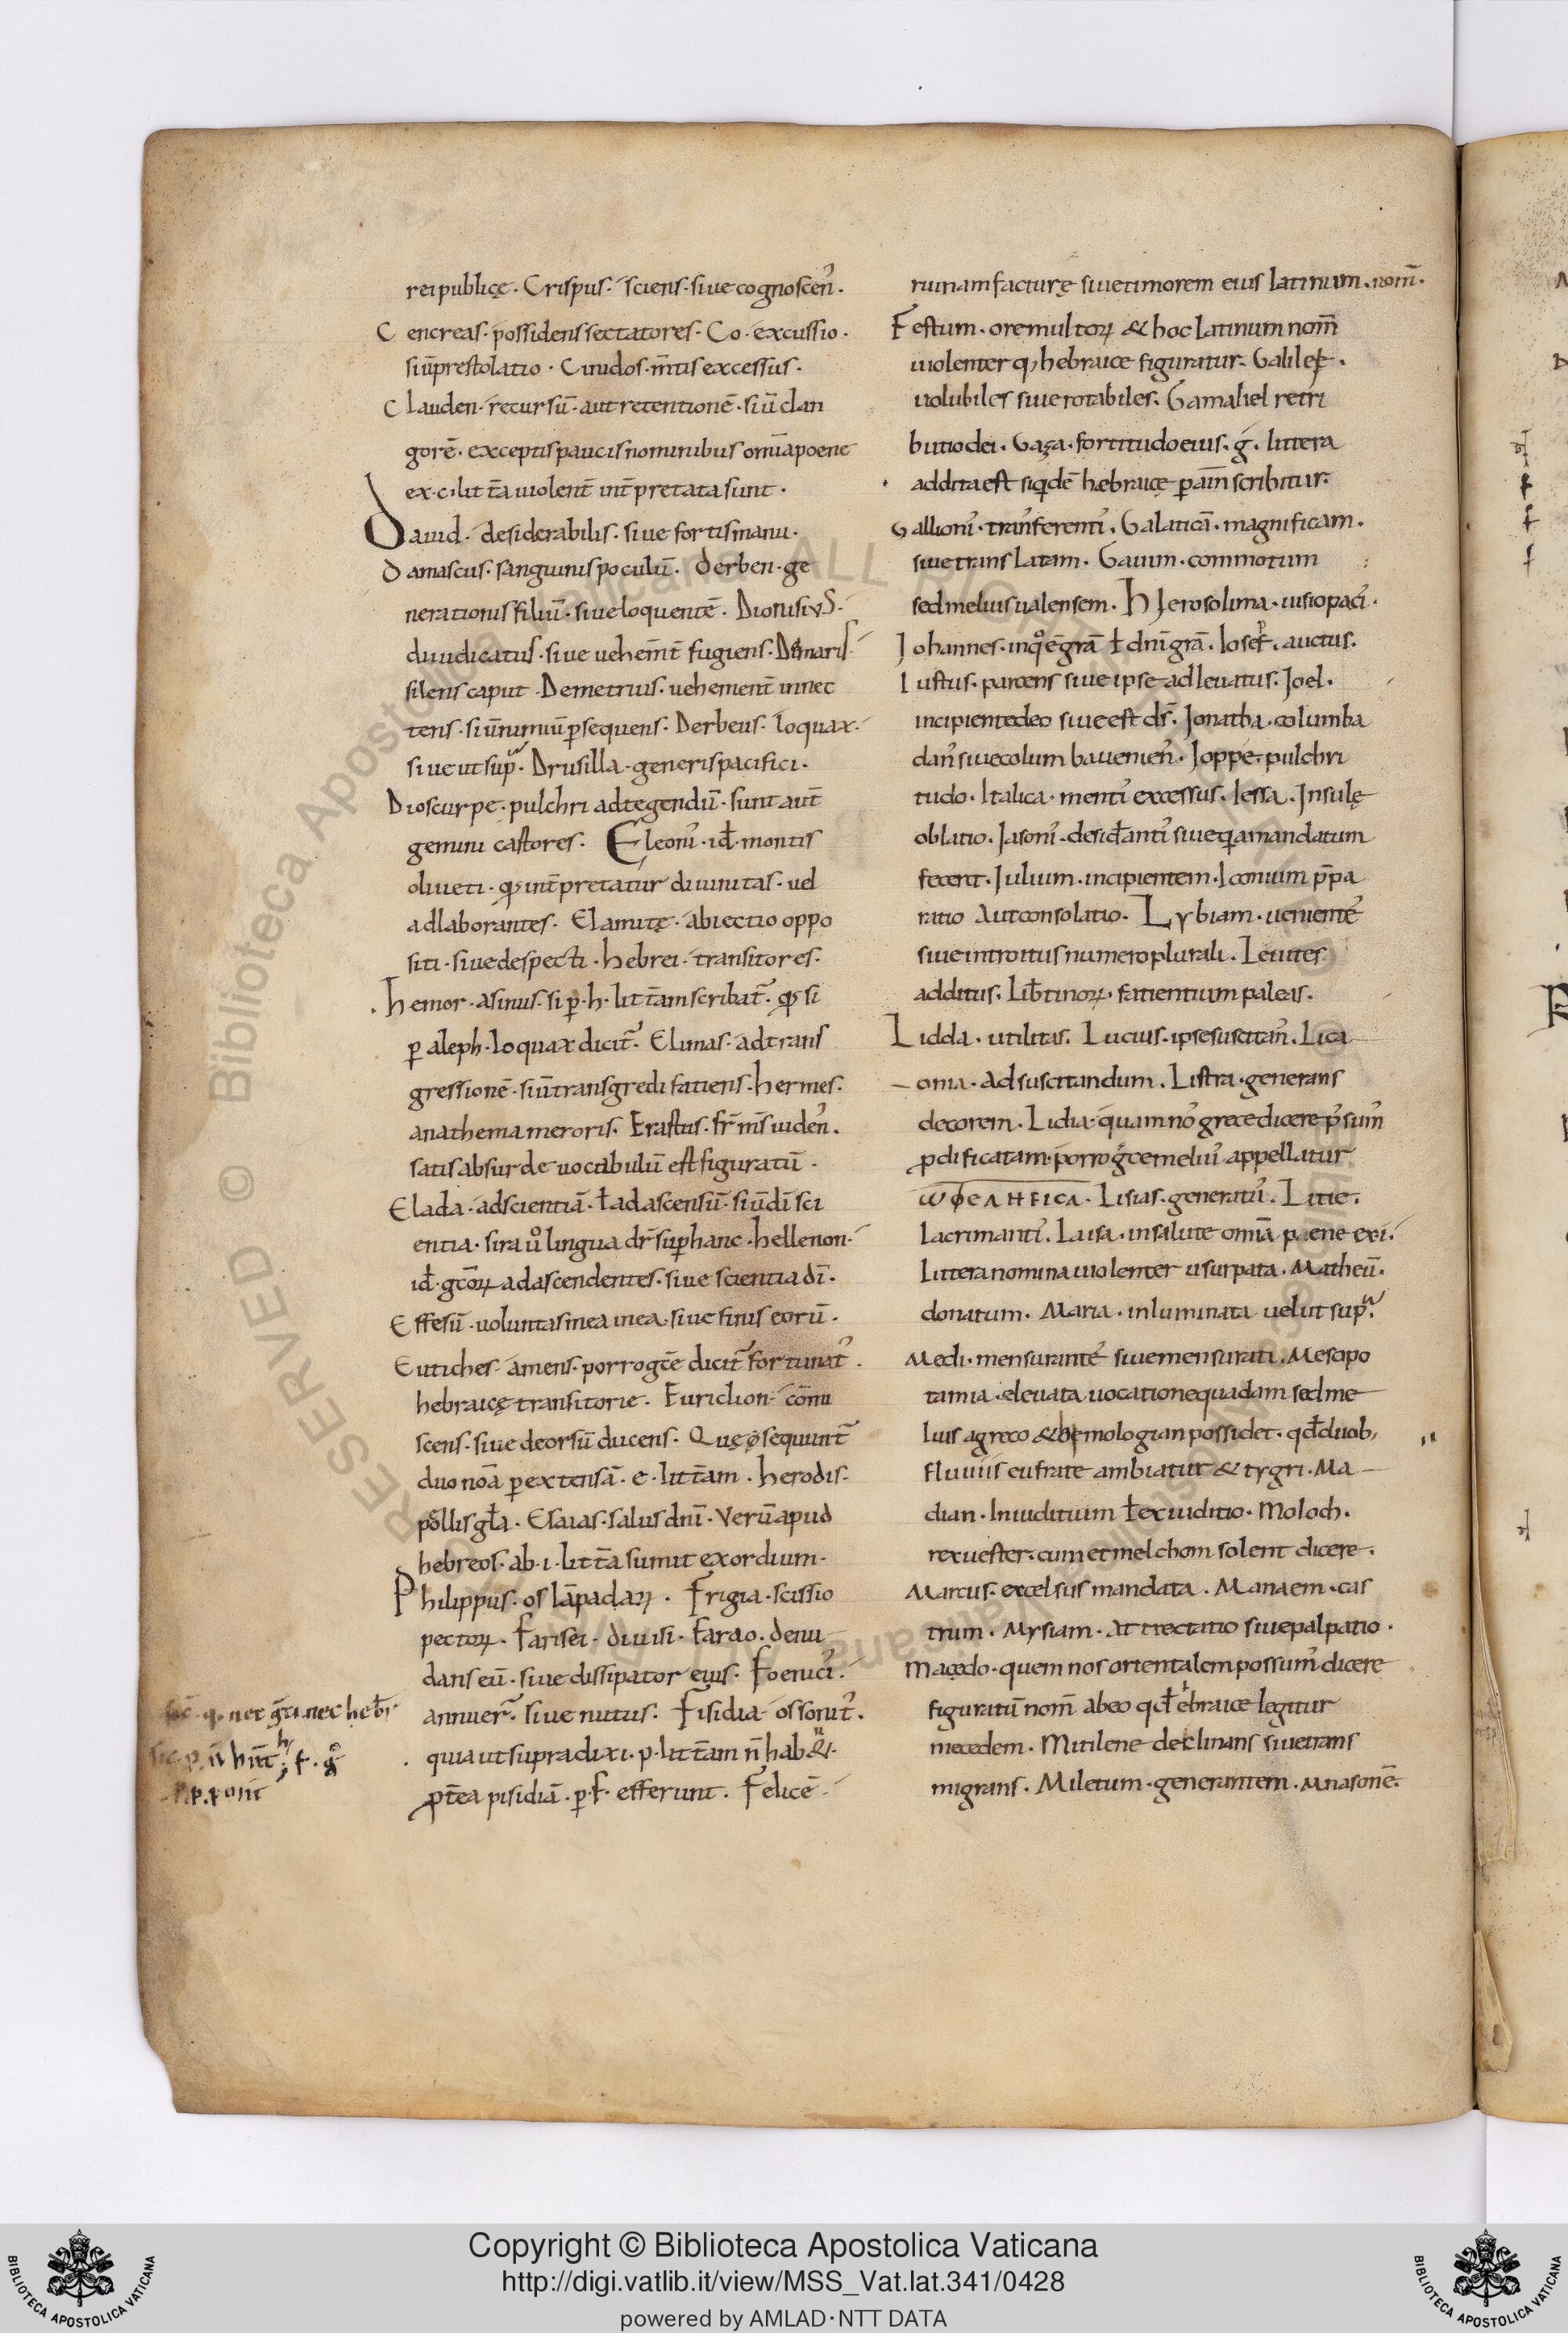 rei publicę. Crispus. sciens. siue cognoscen̄.
Cencreas. possidens sectatores. Co. excussio.
siū prestolatio. Cnidos. m̄tis excessus.
Clauden. recursū. aut retentionē. siū clan
gorē. exceptis paucis nominibus om̄ia poene
ex .c. litt̄a uiolent̄ int̄pretata sunt.
Dauid. desiderabilis. siue fortis manu.
Damascus. sanguinis poculū. Derben. ge
nerationis filiū. siue loquentē. DionisiyS.
diuidicatus. siue uehem̄t̄ fugiens. Damaris
silens caput. Demetrius. uehement̄ innec
tens. siū nimiū psequens. Derbeus. loquax.
siue ut sup. Drusilla. generis pacifici.
Dioscurpe. pulchri ad tegendū. sunt aut̄
gemini castores. Eleoni᾽. id̄. montis
oliueti. ꝙ int̄pretatur diuinitas. uel
adlaborantes. Elamitę. abiectio oppo
siti. siue despecti. hebrei. transitores.
hemor. asinus. si ꝑ .h. litt̄am scribat᾽. ꝙ si
ꝑ aleph. loquax dicit᾽. Elimas. ad trans
gressionē. siū transgredi fatiens. hermes.
anathema meroris. Erastus. fr̄ m̄s uiden᾽.
satis absurde uocabulū est figuratū.
Elada. ad scientiā. ł ad ascensū. siū dī sci
entia. sira uͦ lingua dr̄ sup hanc. hellenon.
id̄. gc̄oꝝ ad ascendentes. siue scientia dī.
Effesū. uoluntas mea in ea. siue finis eorū.
Eutiches. amens. porro gc̄e dicit᾽ fortunat᾽.
hebraicę transitorie. Euriclion. com̄i
scens. siue deorsū ducens. Quę sequunt᾽
duo noā ꝑ extensā .e. litt̄am. herodis.
pellis gła. Esaias. salus dnī. Verū apud
hebreos. ab .i. litt̄a sumit exordium.
Philippus. os lāpadaꝝ. Frigia. scissio
pectoꝝ. Farisei. diuisi. Farao. denu
dans eū. siue dissipator eius. Foenici᾽.
annuer᾽. siue nutus. Fisidia. os sonit᾽.
quia ut supra dixi .p. litt̄am n̄ hab&.
ꝓt̄ea pisidiā. ꝑ .f. efferunt. Felicē.
nec hebr̄
ruinam facturę siue timorem eius latinum. nom̄.
Festum. ore multoꝝ & hoc latinum nom̄
uiolenter q, hebraice figuratur. Galileę.
uolubiles siue rotabiles. Gamaliel retri
butio dei. Gaza. fortitudo eius. ǵ. littera
addita est siqdē hebraicę ꝑ ain scribitur.
Gallioni᾽. tran᾽ferenti᾽. Galaticā. magnificam.
siue translatam. Gaium. commotum
sed melius ualensem. hJerosolima. uisio paci᾽.
Johannes. in qͦ ē grā ł dnī grā. Iosef. auctus.
Iustus. parcens siue ipse adleuatus. Joel.
incipiente deo siue est ds̄. Jonatha. columba
dan᾽ siue columba uenien᾽. Joppe. pulchri
tudo. Italica. menti᾽ excessus. Iessa. Insulę
oblatio. Jasoni᾽. desid̄anti᾽ siue q̄ mandatum
fecerit. Julium. incipientem. Iconium p̄pa
ratio aut consolatio. Lybiam. uenientē
siue introitus numero plurali. Leuites.
additus. Lib̄tinoꝝ. fatientium paleas.
Lidda. utilitas. Lucius. ipse suscitan᾽. Lica
onia. ad suscitandum. Listra. generans
decorem. Lidia. quam no᾽ grece dicere p᾽sum᾽
ꝓdificatam. porro gce meliu᾽ appellatur
ωφελητιca. Lisias. generatu᾽. Litie.
lacrimanti᾽. Laisa. in salute omīa paene ex i.
littera nomina uiolenter usurpata. Matheū.
donatum. Maria. inluminata uelut sup.
Medi. mensurante᾽ siue mensurati. Mesopo
tamia. eleuata uocatione quadam sed me
lius a greco & hemologian possidet. qd̄ duob,
fluuiis eufrate ambiatur & tygri. Ma
dian. In iuditium ł ex iuditio. Moloch.
rex uester. cum et melchom solent dicere.
Marcus. excelsus mandata. Manaem. cas
trum. Mysiam. attrectatio siue palpatio.
Macedo. quem nos orientalem possum᾽ dicere
figuratū nom̄ ab eo qd̄ ebraice legitur
mecedem. Mitilene declinans siue trans
migrans. Miletum. generantem. Mnasonē.
Copyright © Biblioteca Apostolica Vaticana
http://digi.vatlib.it/view/MSS_Vat.lat.341/0428
powered by AMLAD·NTT DATA
BIBLIOTECA APOSTOLICA VATICANA
BIBLIOTECA APOSTOLICA VATICANA